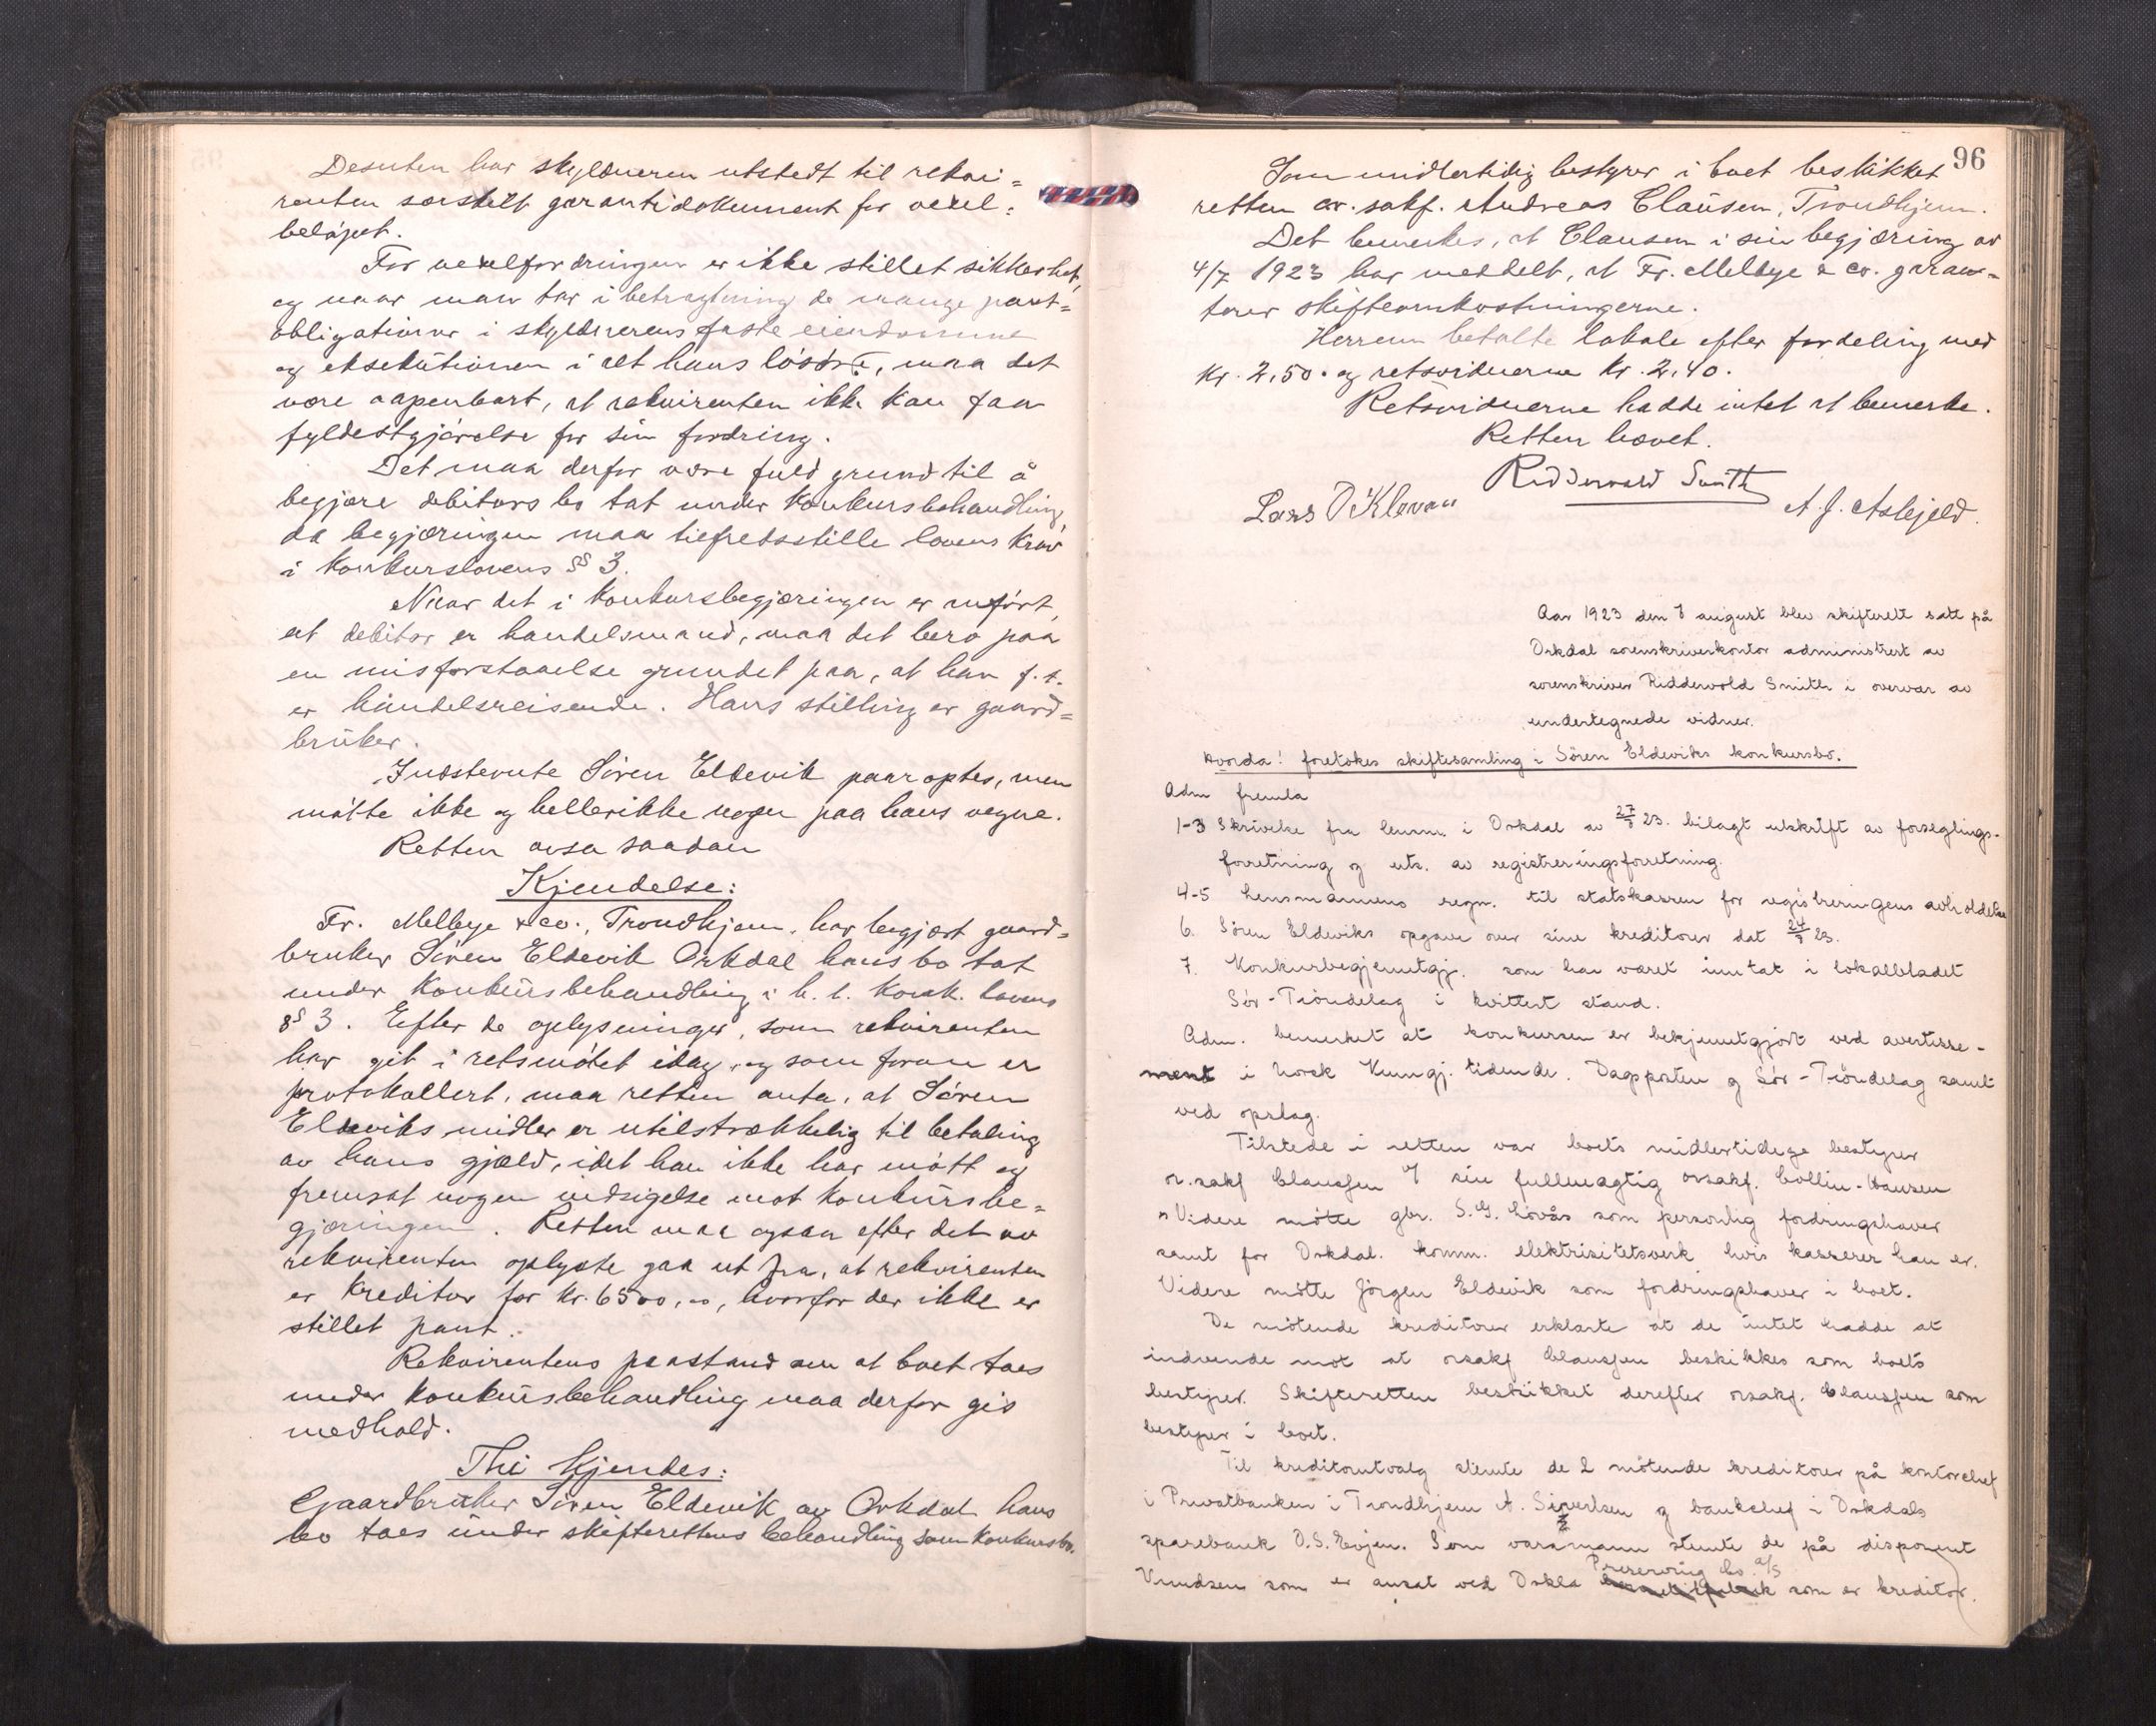 Desuten har skyldneren utstedt til rekvi=
renten særskilt garantidokument for vexel=
beløpet.
For vexelfordringen er ikke stillet sikkerhet,
og naar man tar i betragtning de mange pant=
obligationer i skyldnerens faste eiendomme
og eksekutionen i alt hans løsøre, maa det
være aapenbart, at rekvirenten ikke kan faa
fyldestgjørelse for sin fordring.
Det maa derfor være fuld grund til å
begjære debitors bo tat under konkursbehandling,
da begjæringen maa tilfredsstille lovens krav
i konkurslovens § 3.
Naar det i konkursbegjæringen er anført,
at debitor er handelsmand, maa det bero paa
en misforstaaelse grundet paa, at han f. t.
er handelsreisende. Hans stilling er gaard=
bruker.
Indstevnte Søren Eldevik paaroptes, men
møtte ikke og heller ikke nogen paa hans vegne.
Retten avsa saadan
Kjendelse:
Fr. Melbye & co., Trondhjem, har begjært gaard=
bruker Søren Eldevik Orkdal hans bo tat
under konkursbehandling i h. t. konk. lovens
§ 3. Efter de oplysninger, som rekvirenten
har git i retsmøtet idag, og som foran er
protokollert, maa retten anta, at Søren
Eldeviks midler er utilstrækkelig til betaling
av hans gjæld, idet han ikke har møtt og
fremsat nogen indsigelse mot konkursbe=
gjæringen. Retten maa ogsaa efter det av
rekvirenten oplyste gaa ut fra, at rekvirenten
er kreditor for kr. 6500,00, hvorfor der ikke er
stillet pant.
Rekvirentens paastand om at boet taes
under konkursbehandling maa derfor gis
medhold.
Thi kjendes:
Gaardbruker Søren Eldevik av Orkdal hans
bo taes under skifterettens behandling som konkursbo.
96
Som midlertidig bestyrer i boet beskikket
retten o.r. sakf. Andreas Clausen, Trondhjem.
Det bemerkes, at Clausen i sin begjæring av
4/7 1923 har meddelt, at Fr. Melbye & co. garan=
terer skifteomkostningerne.
Herren betalte lokale efter fordeling med
kr. 2,50. og retsvidnerne kr. 2,40.
Retsvidnerne hadde intet at bemerke.
Retten hævet.
Ridderwold Smith
Lars O Kleven
A. J. Asbjeld.
Aar 1923 den 7 august blev skifterett satt på
Orkdal sorenskriverkontor administrert av
sorenskriver Ridderwold Smith i overvær av
undertegnede vidner.
Hvorda! foretokes skiftesamling i Søren Eldeviks konkursbo.
Adm fremla
1-3 Skrivelse fra lensm. i Orkdal av 27/7 23. bilagt utskrift av forseglings-
forretning og uts. av registreringsforretning.
4-5 Lensmannens regn. til statskassen for registreringens avholdelse
6. Søren Eldeviks opgave over sine kreditorer dat 24/7 23.
7. Konkursbegjenntgj. som har været inntat i lokalbladet
Sør-Trøndelag i kvittert stand.
Adm. bemerket at konkursen er bekjenntgjort ved avertisse-
ment i Norsk Kungj. tidende. Dagsposten og Sør-Trøndelag samt
ved opslag.
Tilstede i retten var boets midlertidige bestyrer
or.sakf Claussen v/ sin fullmægtig orsakf. Collin-Hansen
Videre møtte gbr. S. G. Løvås som personlig fordringshaver
samt for Orkdal. komm. elektrisitetsverk hvis kasserer han er.
Videre møtte Jørgen Eldevik som fordringshaver i boet.
De møtende kreditorer erklærte at de intet hadde at
indvende mot at orsakf Claussen beskikkes som boets
bestyrer. Skifteretten beskikket derefter orsakf. Claussen som
bestyrer i boet.
Til kreditorutvalg stemte de 2 møtende kreditorer på kontorchef
i Privatbanken i Trondhjem A. Sivertsen og bankchef i Orkdals
sparebank O. S. Evjen. Som varamann stemte de på disponent
Preserving Co. A/S
Knudsen som er ansat ved Orkla som er kreditor.